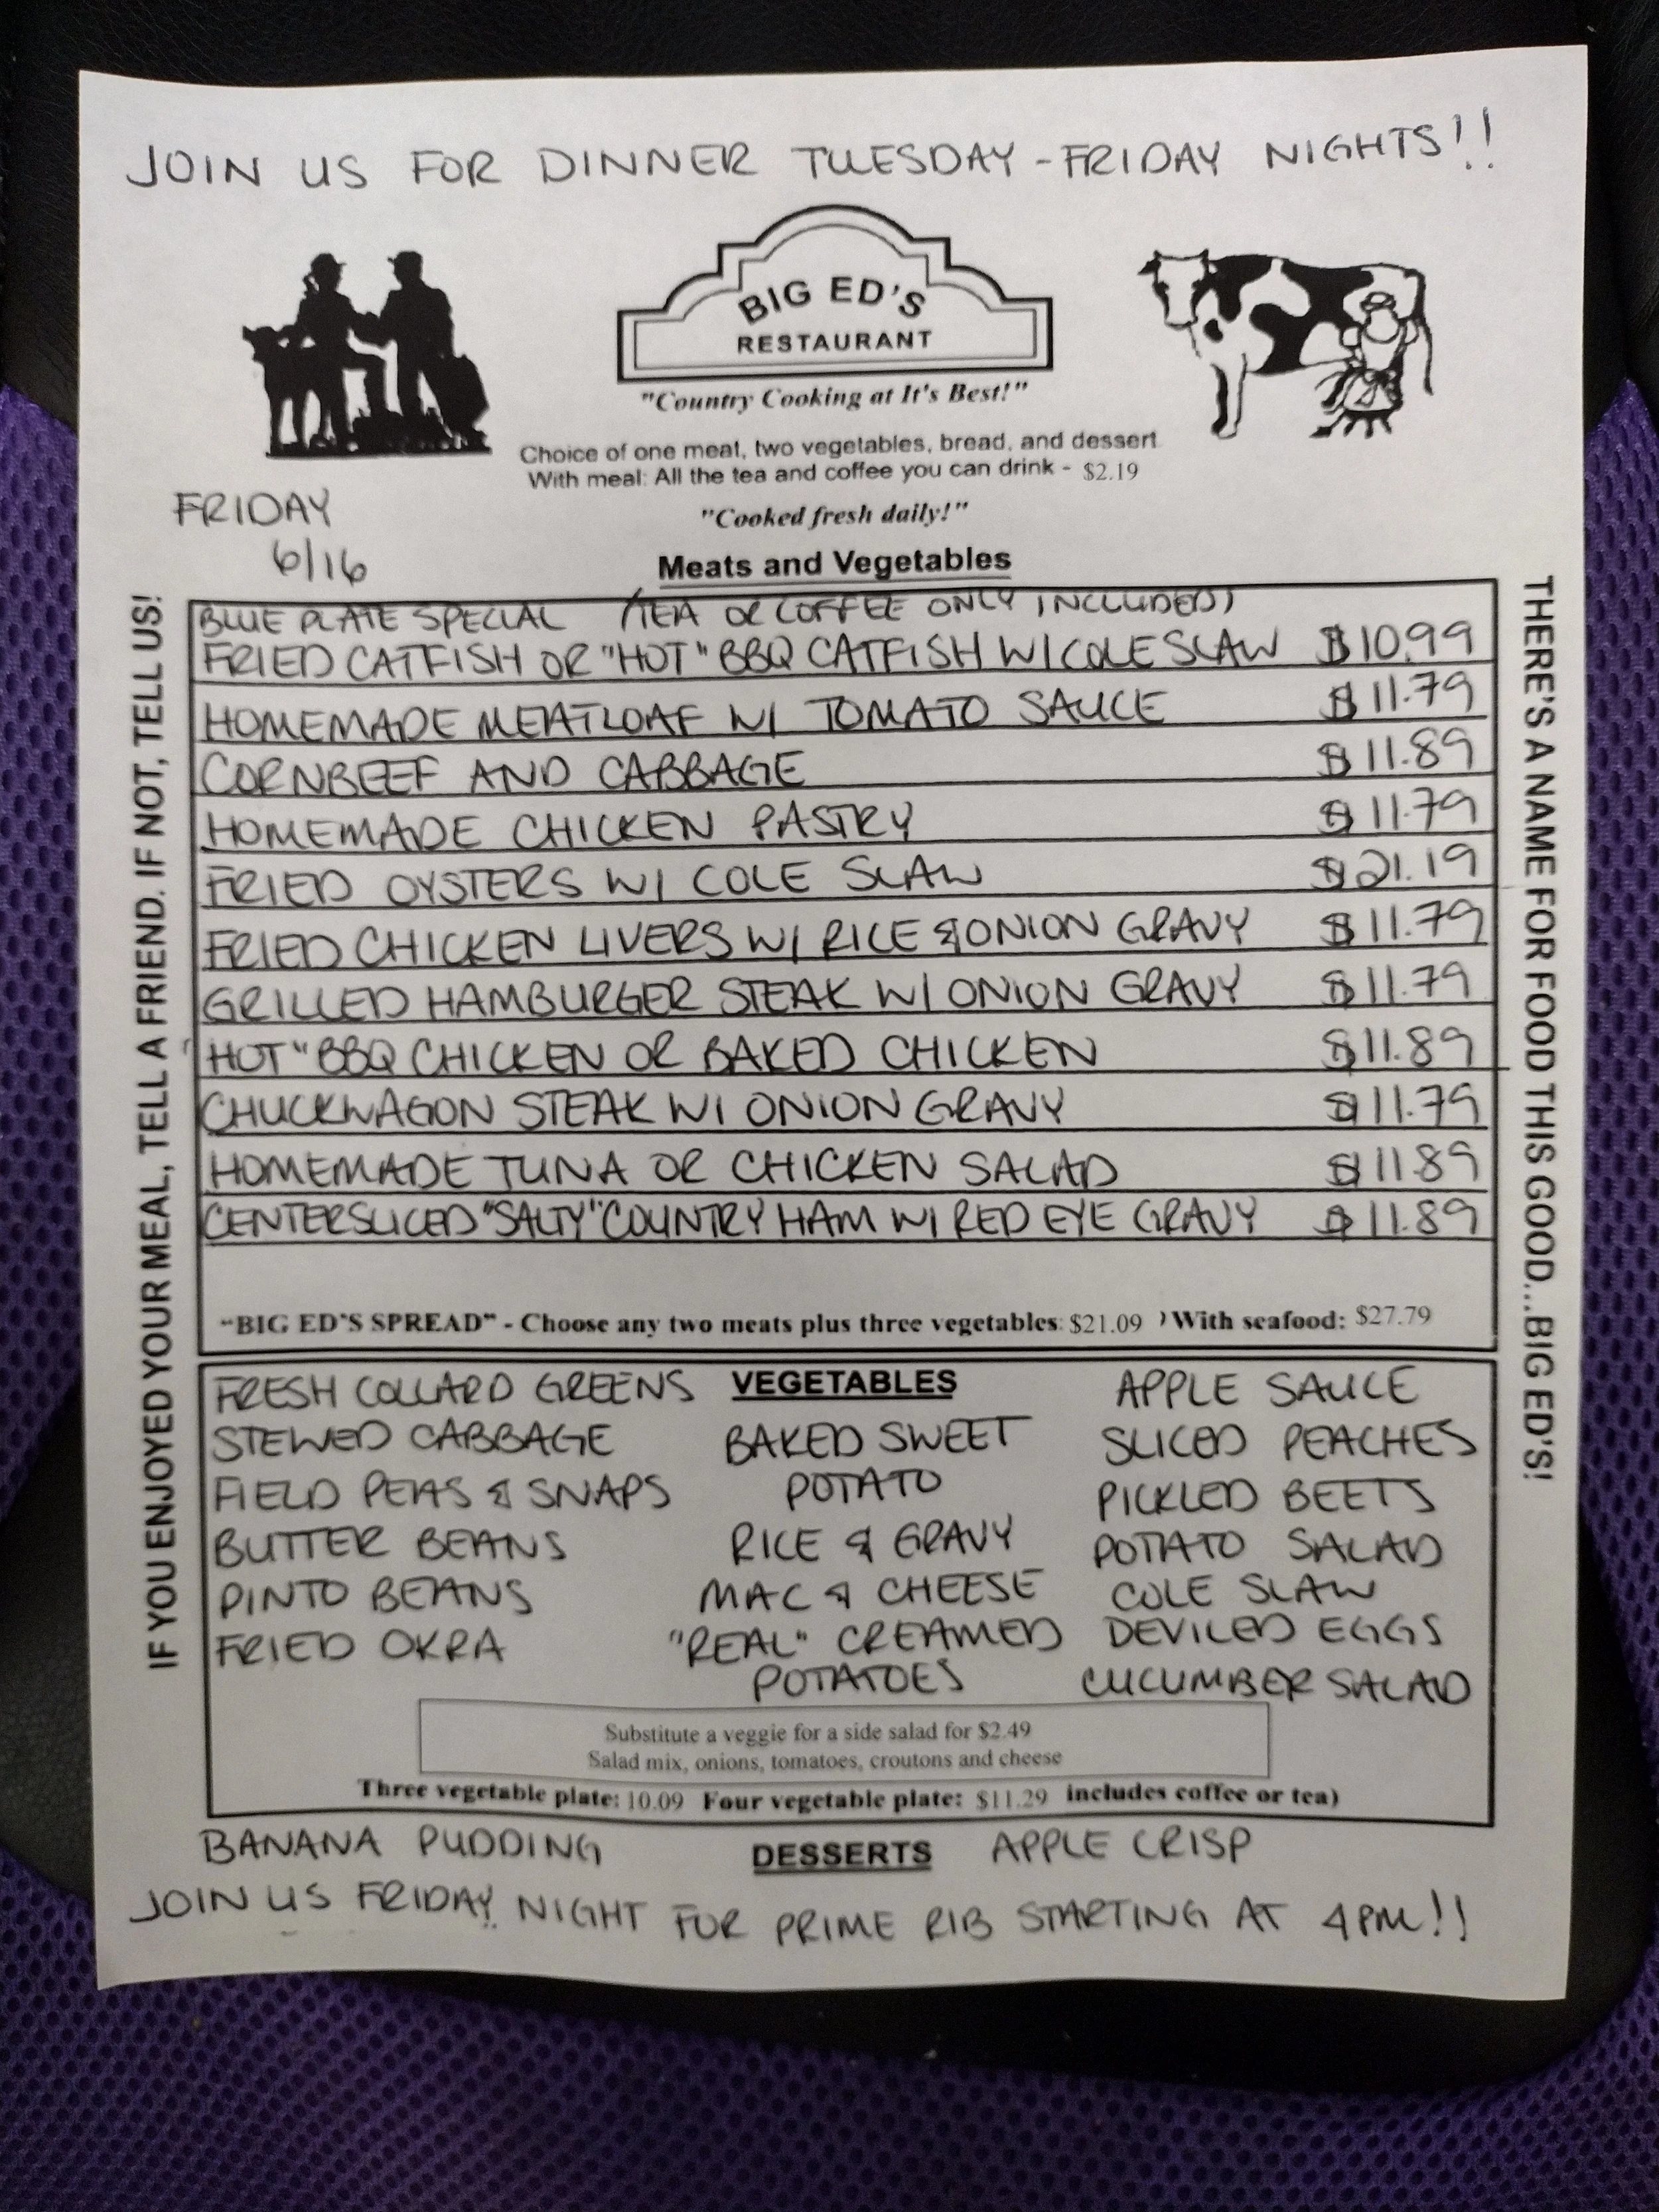 JOIN US FOR DINNER TUESDAY - FRIDAY NIGHTS!!
BIG ED'S
RESTAURANT
"Country Cooking at It's Best!"
Choice of one meat, two vegetables, bread, and dessert
With meal: All the tea and coffee you can drink - $2.19
FRIDAY
6/16
"Cooked fresh daily!"
Meats and Vegetables
IF YOU ENJOYED YOUR MEAL, TELL A FRIEND. IF NOT, TELL US!
BLUE PLATE SPECIAL (TEA OR COFFEE ONLY INCLUDED)
FRIED CATFISH OR "HOT" BBQ CATFISH W/ COLE SLAW $10.99
HOMEMADE MEATLOAF W/ TOMATO SAUCE $11.79
CORNBEEF AND CABBAGE $11.89
HOMEMADE CHICKEN PASTRY $11.79
FRIED OYSTERS W/ COLE SLAW $21.19
FRIED CHICKEN LIVERS W/ RICE & ONION GRAVY $11.79
GRILLED HAMBURGER STEAK W/ ONION GRAVY $11.79
"HOT" BBQ CHICKEN OR BAKED CHICKEN $11.89
CHUCKWAGON STEAK W/ ONION GRAVY $11.79
HOMEMADE TUNA OR CHICKEN SALAD $11.89
CENTERSLICED "SALTY" COUNTRY HAM W/ RED EYE GRAVY $11.89
"BIG ED'S SPREAD" - Choose any two meats plus three vegetables: $21.09 ) With seafood: $27.79
THERE'S A NAME FOR FOOD THIS GOOD...BIG ED'S!
VEGETABLES
FRESH COLLARD GREENS
STEWED CABBAGE
FIELD PEAS & SNAPS
BUTTER BEANS
PINTO BEANS
FRIED OKRA
BAKED SWEET
POTATO
RICE & GRAVY
MAC & CHEESE
"REAL" CREAMED
POTATOES
APPLE SAUCE
SLICED PEACHES
PICKLED BEETS
POTATO SALAD
COLE SLAW
DEVILED EGGS
CUCUMBER SALAD
Substitute a veggie for a side salad for $2.49
Salad mix, onions, tomatoes, croutons and cheese
Three vegetable plate: 10.09 Four vegetable plate: $11.29 includes coffee or tea)
BANANA PUDDING DESSERTS APPLE CRISP
JOIN US FRIDAY NIGHT FOR PRIME RIB STARTING AT 4PM!!